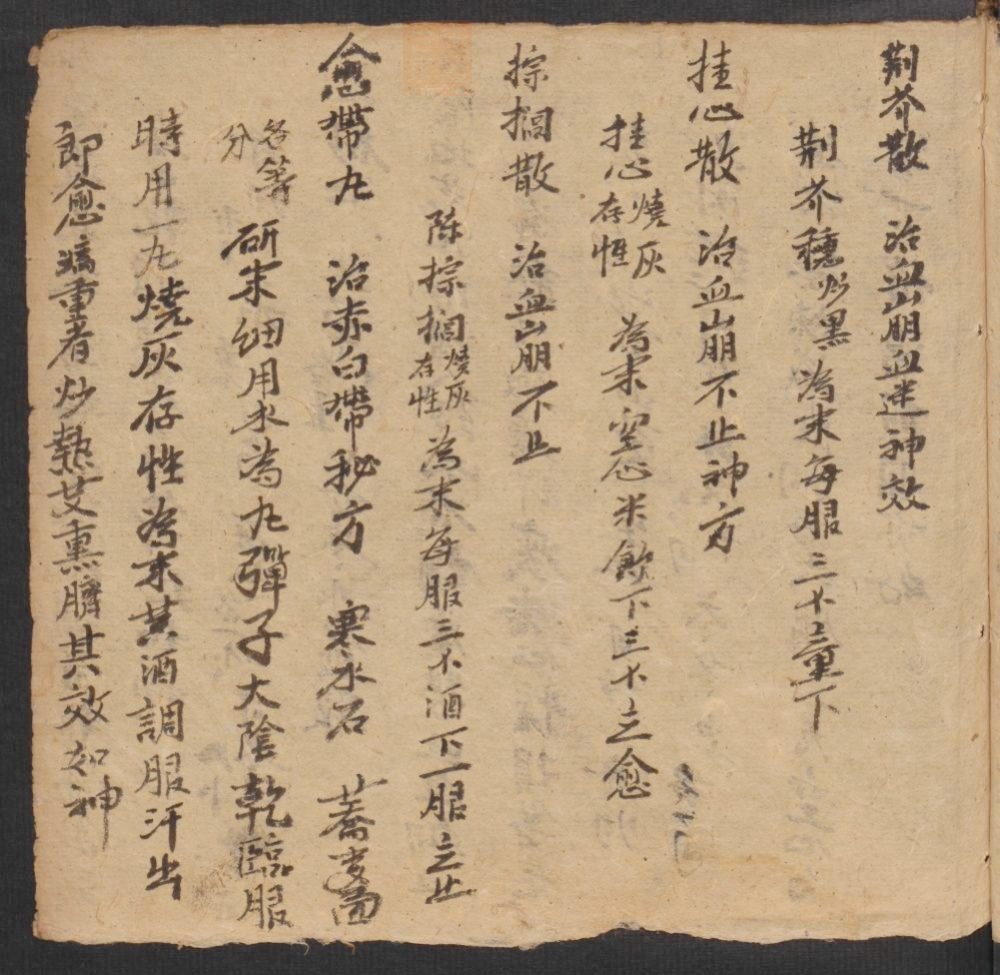 荆芥散 治血山崩血迷神效
荆芥穗炒黑為末每服三个童下
挂心散 治血山崩不止神方
挂心燒灰存性 為末空心米飲下三个立愈
棕搁散 治血山崩不止
陈棕搁燒灰存性為末每服三个酒下一服立止
愈帶丸 治赤白帶秘方 寒水石 蕎麦面
各等分 研末細用水為丸彈子大陰乾臨服
時用一丸燒灰存性為末黄酒調服汗出
即愈病重者炒熱艾熏臍其效如神